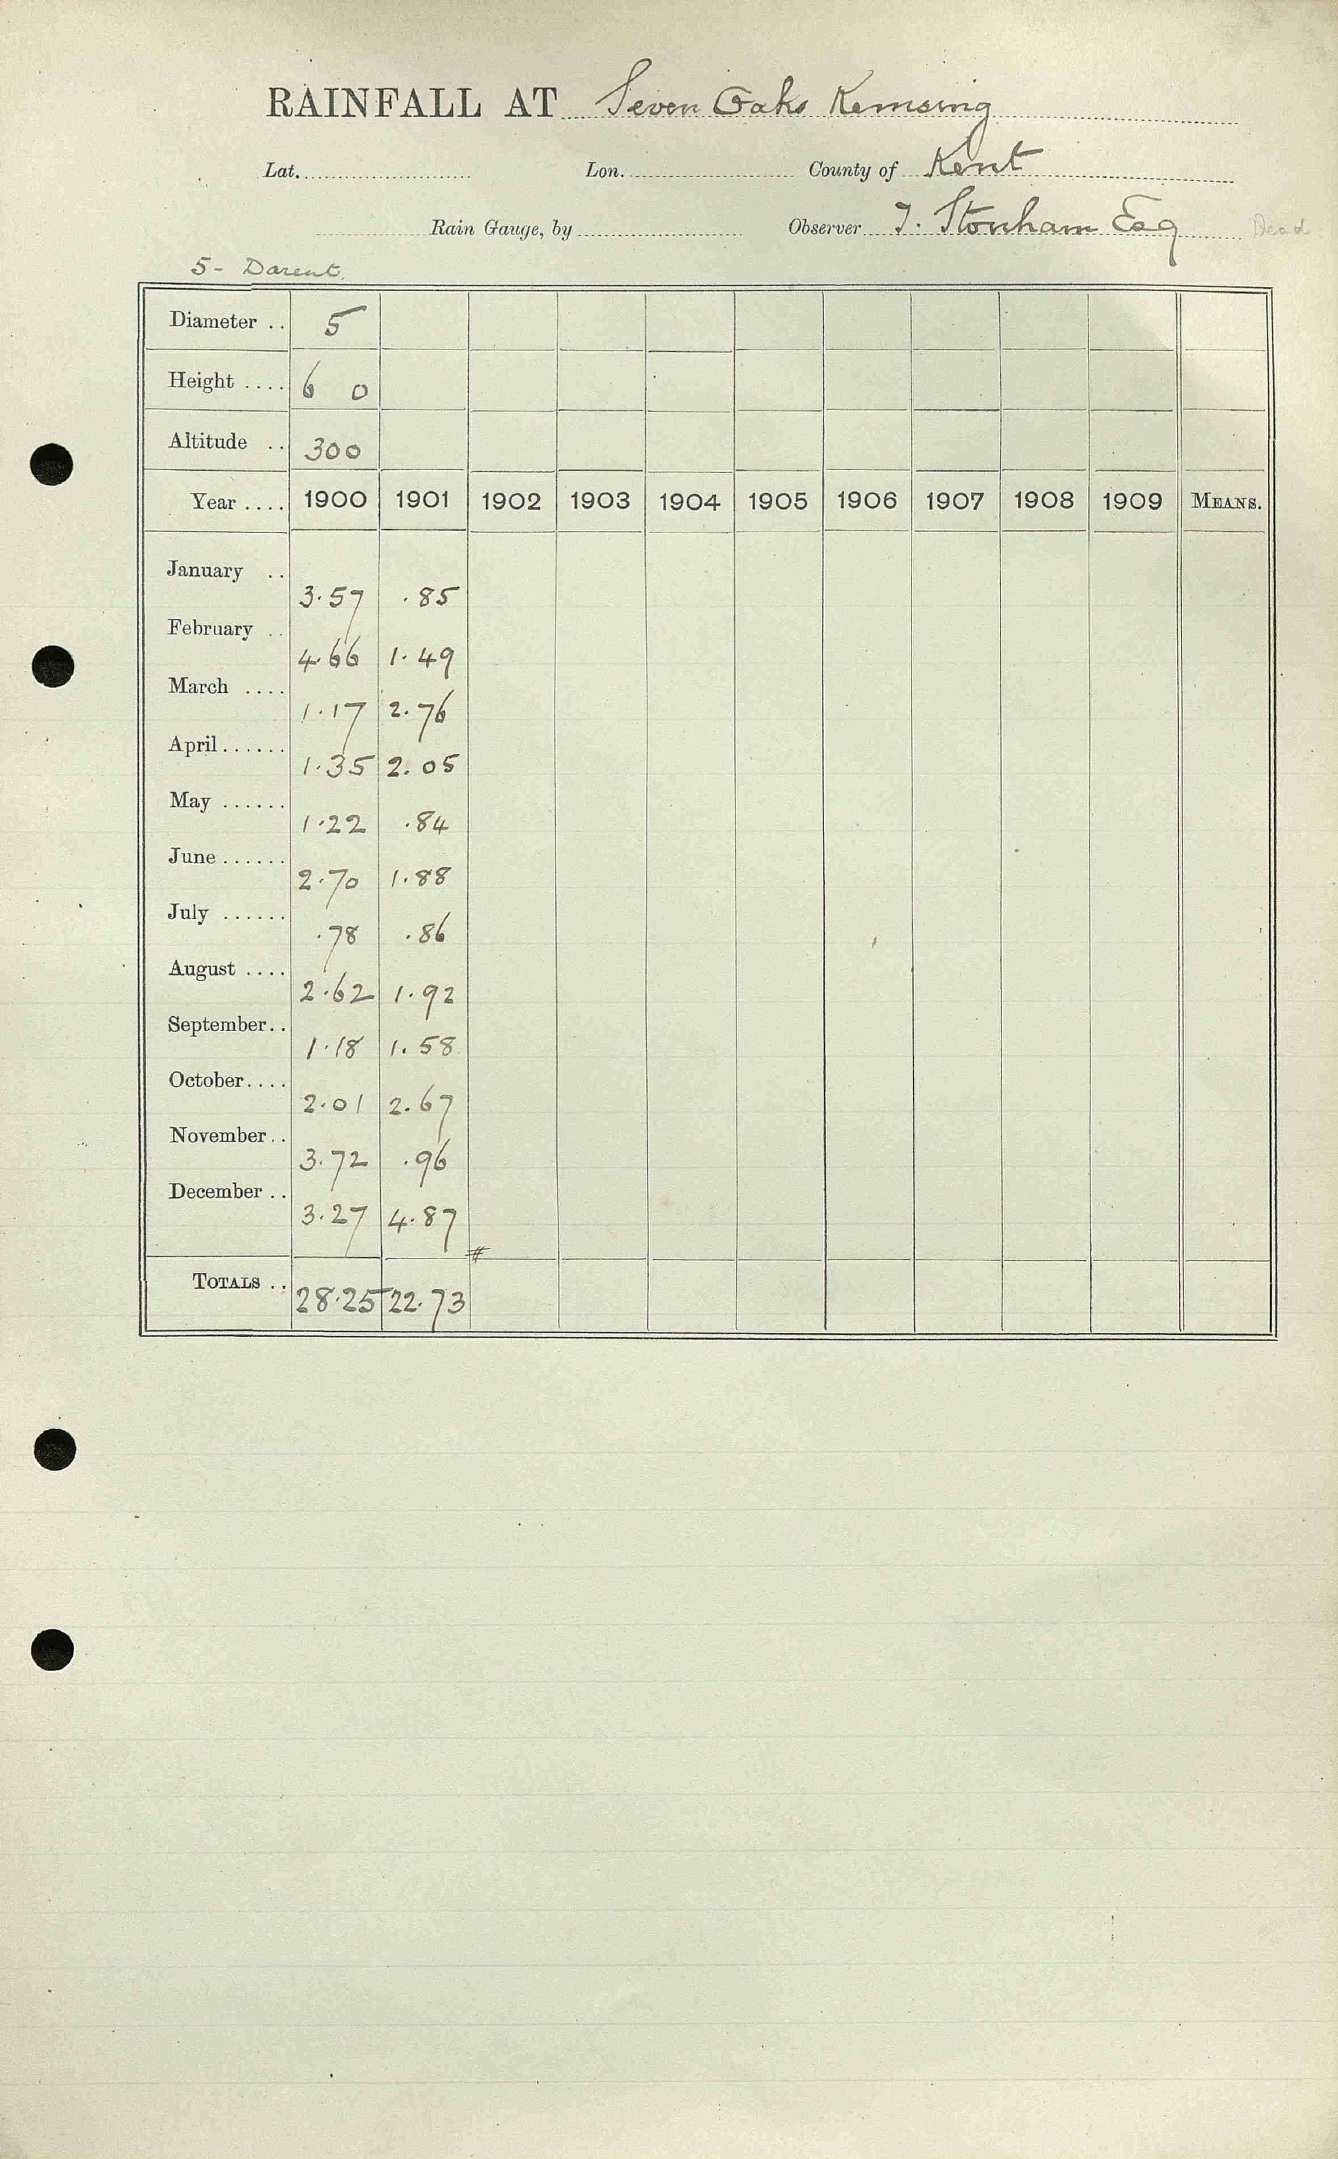 RAINFALL AT Seven Oaks Kemsing
Lat. Lon. County of Kent
Rain Gauge, by Observer T. Stonham Esq Dead
5 - Darent.
Diameter .. 5
Height .... 6 0
Altitude .. 300
Year .... 1900 1901 1902 1903 1904 1905 1906 1907 1908 1909 MEANS.
January .. 3.57 .85
February .. 4.66 1.49
March .... 1.17 2.76
April...... 1.35 2.05
May ...... 1.22 .84
June...... 2.70 1.88
July ...... .78 .86
August .... 2.62 1.92
September.. 1.18 1.58
October.... 2.01 2.67
November.. 3.72 .96
December .. 3.27 4.87
#
TOTALS .. 28.25 22.73